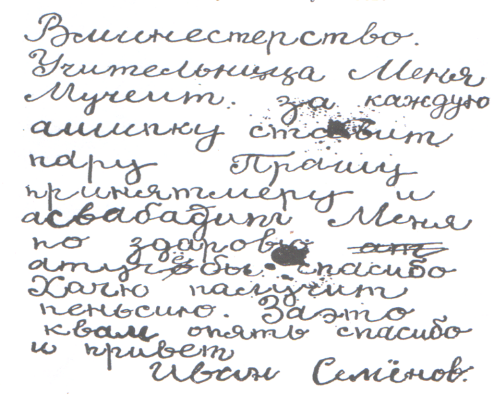 Вминестерство.
Учительница Меня
Мучеит. за каждую
ашипку ставит
пару Прашу
принятмеру и
асвабадит Меня
по здаровью ат
атучёбы. спасибо
Хачю паслучит
пеньсию. Заэто
квам опять спасибо
и привет
Иван Семёнов.